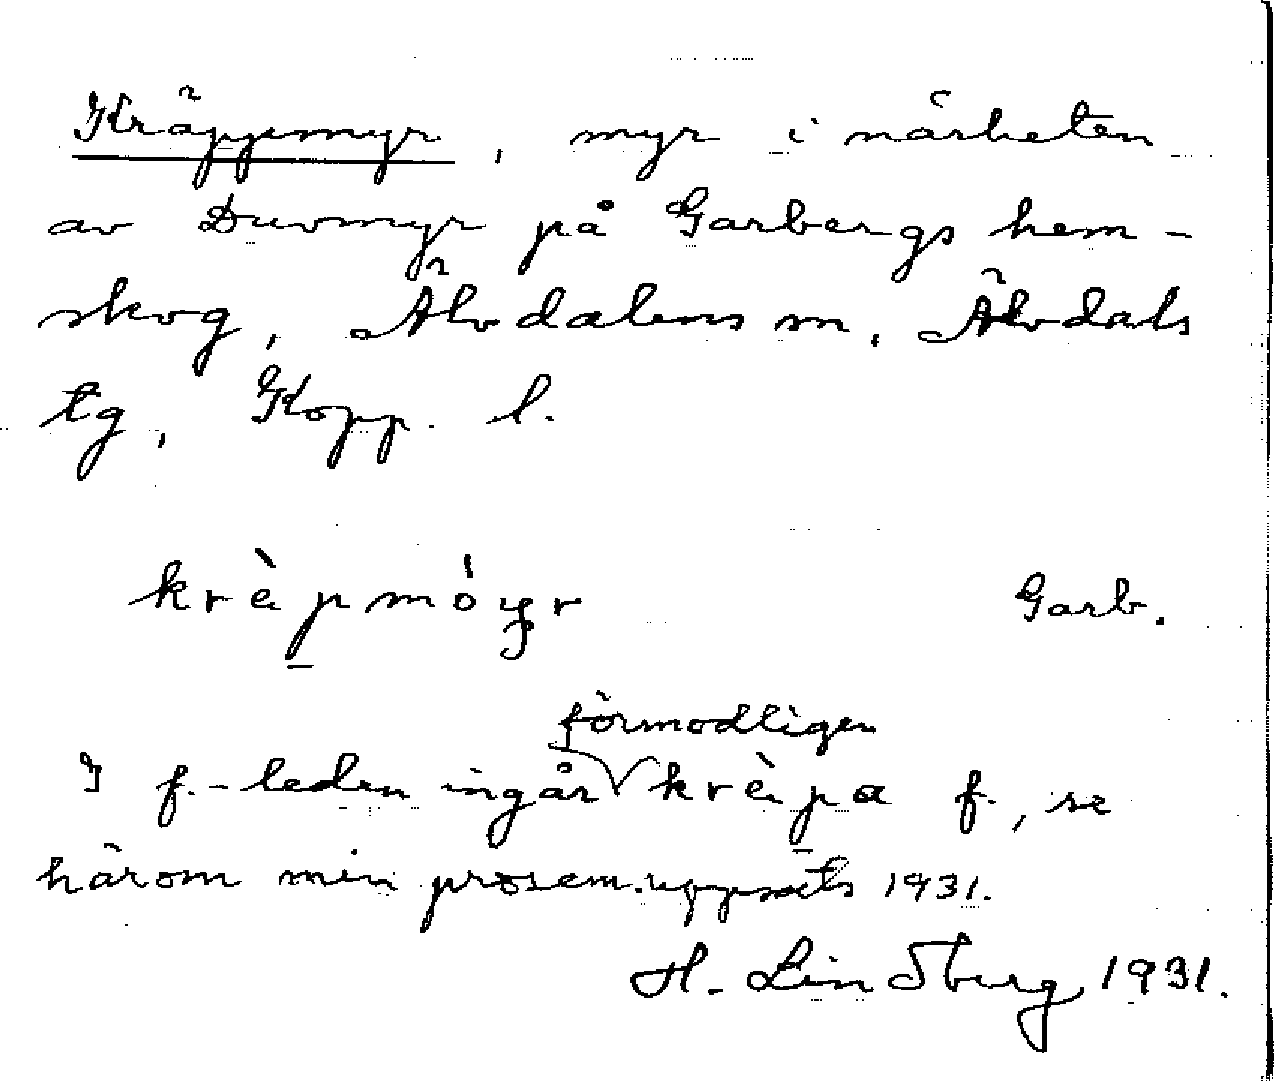 Kräppmyr, myr i närheten
av Duvmyr på Garbergs hem-
skog, Älvdalens sn, Älvdals
tg, Kopp. l.
krèp̱móyr Garb.
förmodligen
I f.-leden ingår krèp̱a f., se
härom min prosem.uppsats 1931.
H. Lindberg 1931.